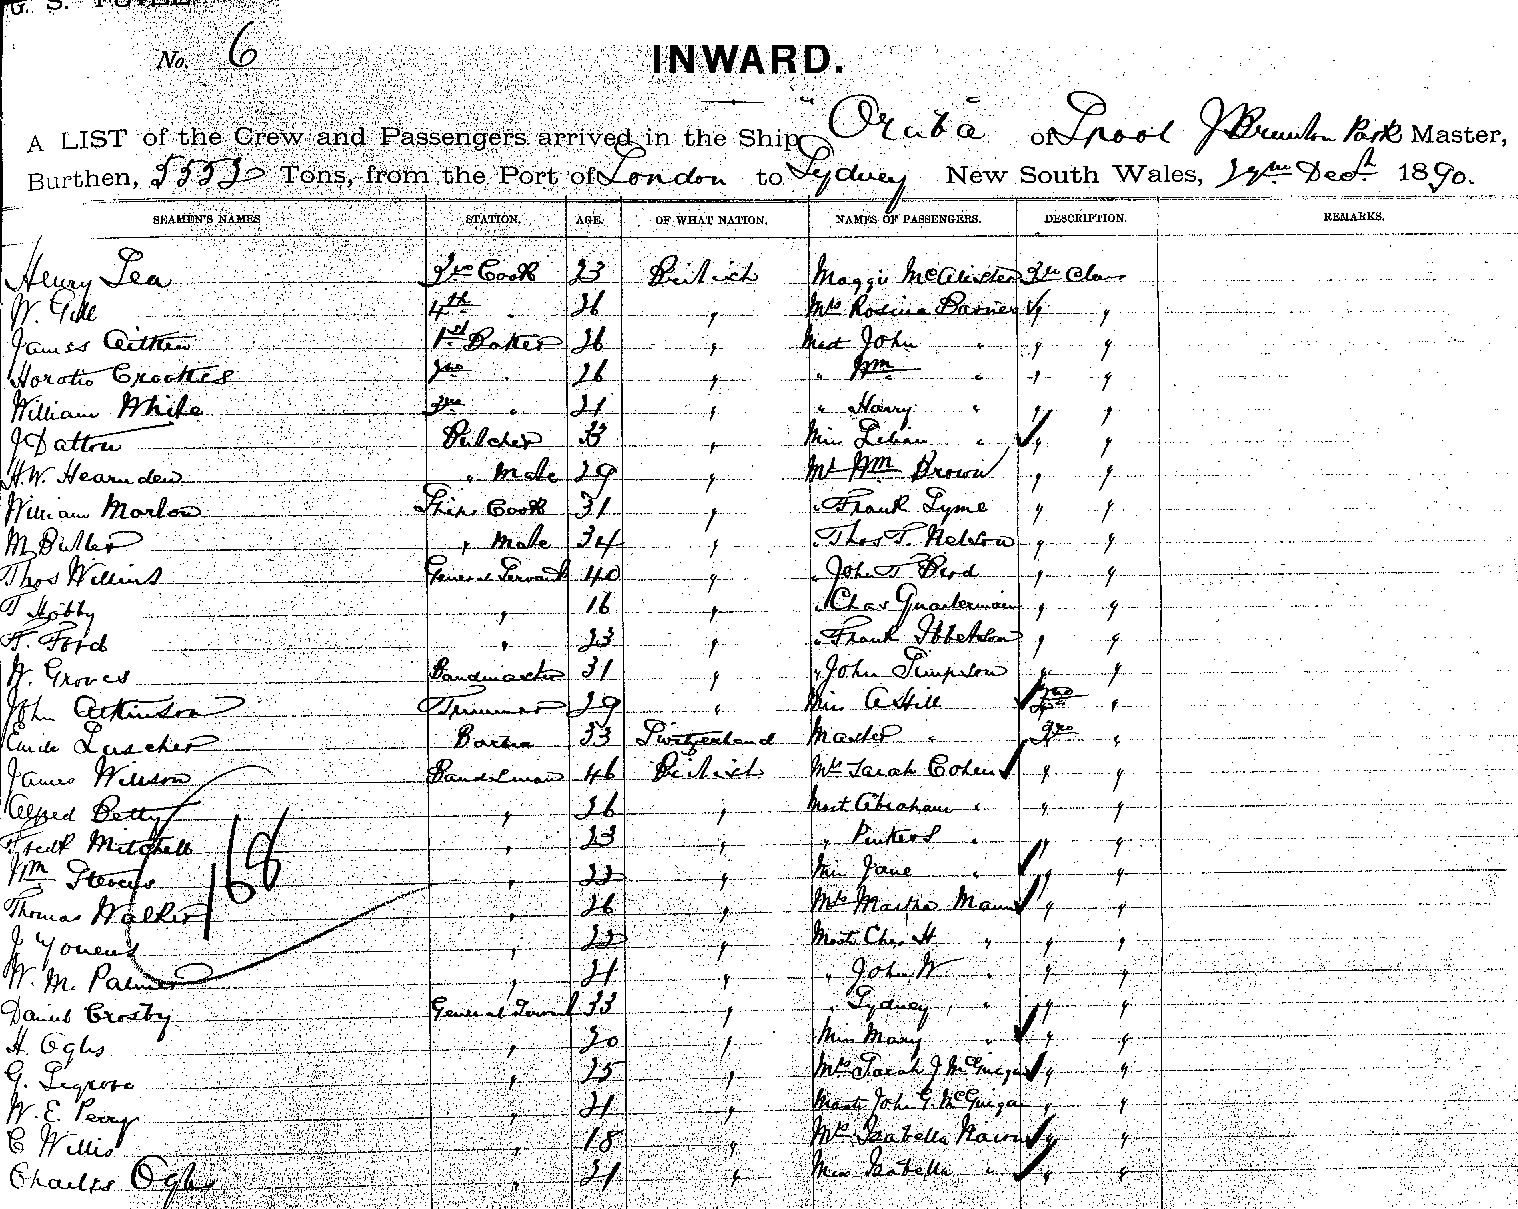 No. 6
INWARD.
A LIST of the Crew and Passengers arrived in the Ship "Oruba" of Lpool J Brunton Park Master,
Burthen, 5552 Tons, from the Port of London to Sydney New South Wales, Decr 1890.
SEAMEN'S NAMES STATION. AGE. OF WHAT NATION. NAMES OF PASSENGERS. DESCRIPTION. REMARKS.
Henry Lea 3rd Cook 23 British Maggie McAlister 3rd Class
W. Gill 4th " 26 " Mrs Rosina " "
James Aitken 1st Baker 26 " Mast John " " "
Horatio Crookes 2nd " 26 " " Wm " " "
William White 3rd " 21 " " Harry " " "
J Datton Butcher 33 " Miss Lilian " " "
H.W. Hearnden " Mate 29 " Mr Wm Brown " "
William Marlow Ships Cook 31 " " Frank Lyme " "
M Butler " Mate 34 " " Thos T. Nelson " "
Thos Wilkins General Servant 40 " " John T Bird " "
T Hobby " 16 " " Chas Quarterman " "
F. Ford " 23 " " Frank Ibbetson " "
W. Groves Bandmaster 31 " " John Simpson " "
John Atkinson Trimmer 29 " Miss A Hill 2nd "
Emile Luscher Barber 33 Switzerland Master " 3rd "
James Willson Bandsman 46 British Mrs Sarah Cohen " "
Alfred Betty " 26 " Mast Abraham " " "
Fredk Mitchell " 23 " " " " "
Wm Stevens " 22 " Miss Jane " " "
Thomas Walker " 26 " Mrs Martha Mann " "
J Yonens " 22 " Mast Chas H " " "
W. M. Palmer " 21 " " John W " " "
168
Daniel Crosby General Servant 33 " " Sydney " " "
H. Ogles " 20 " Miss Mary " " "
G. Legrove " 25 " Mrs Sarah J McGuigan " "
W. E. Perry " 21 " Mast John G. McGuigan " "
C Willis " 18 " Mrs Isabella " "
Charles Ogles " 21 " Miss Isabella " " "